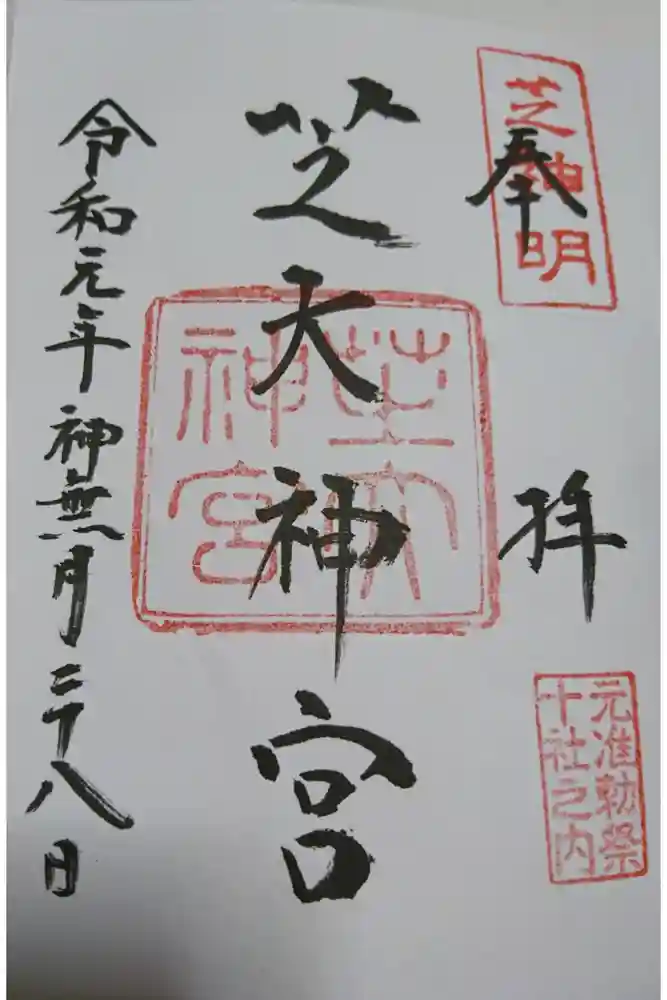 芝神明
奉拝
元准勅祭
十社之内
芝大神宮
芝大
神宮
令和元年神無月二十八日